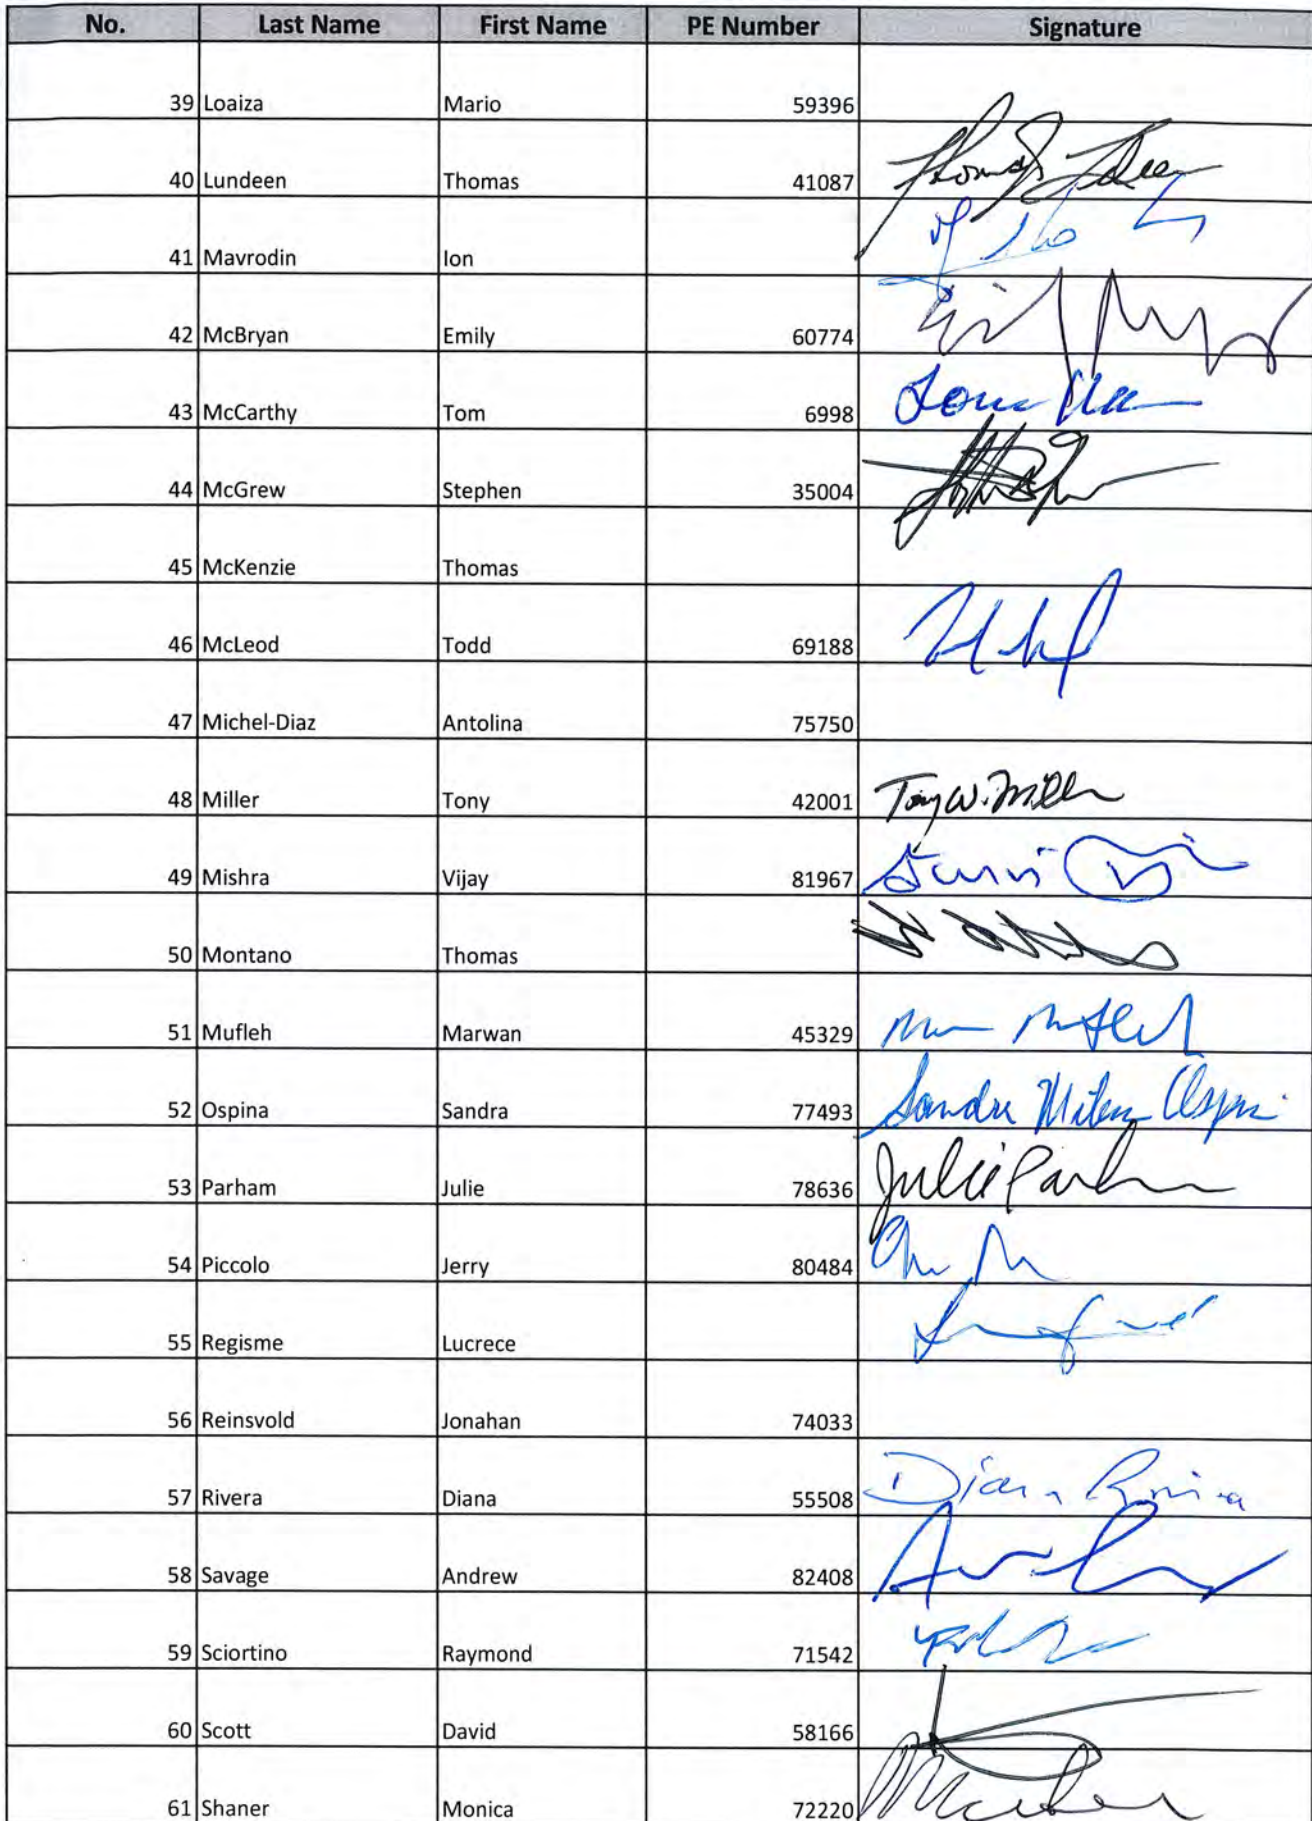 No. Last Name First Name PE Number Signature
39 Loaiza Mario 59396
40 Lundeen Thomas 41087
41 Mavrodin Ion
42 McBryan Emily 60774
43 McCarthy Tom 6998
44 McGrew Stephen 35004
45 McKenzie Thomas
46 McLeod Todd 69188
47 Michel-Diaz Antolina 75750
48 Miller Tony 42001 Tony W. Miller
49 Mishra Vijay 81967
50 Montano Thomas
51 Mufleh Marwan 45329
52 Ospina Sandra 77493 Sandra Milena Ospina
53 Parham Julie 78636 Julie Parham
54 Piccolo Jerry 80484
55 Regisme Lucrece
56 Reinsvold Jonahan 74033
57 Rivera Diana 55508 Diana Rivera
58 Savage Andrew 82408
59 Sciortino Raymond 71542
60 Scott David 58166
61 Shaner Monica 72220